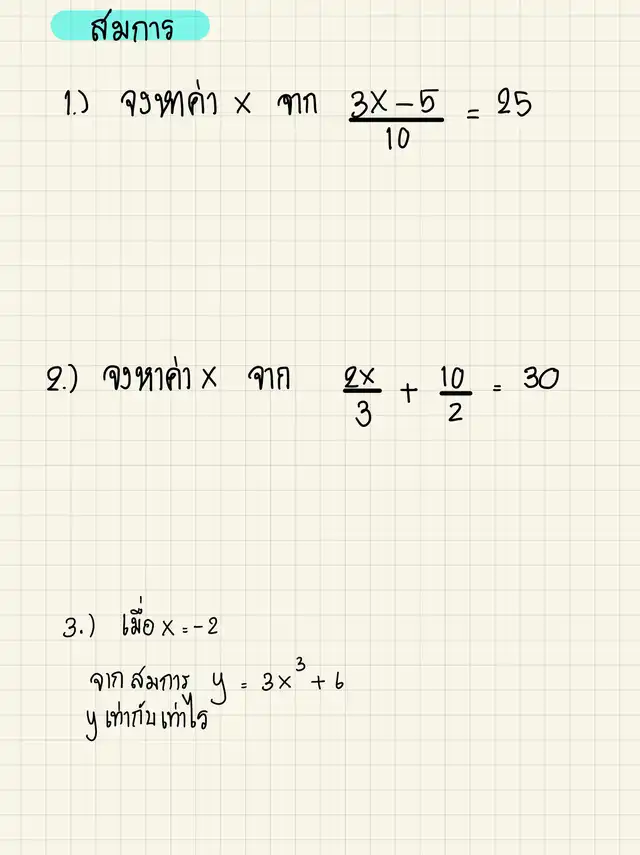 สมการ
1.) จงหาค่า x จาก (3x - 5)/10 = 25
2.) จงหาค่า x จาก 2x/3 + 10/2 = 30
3.) เมื่อ x = -2
จาก สมการ y = 3x³ + 6
y เท่ากับ เท่าไร